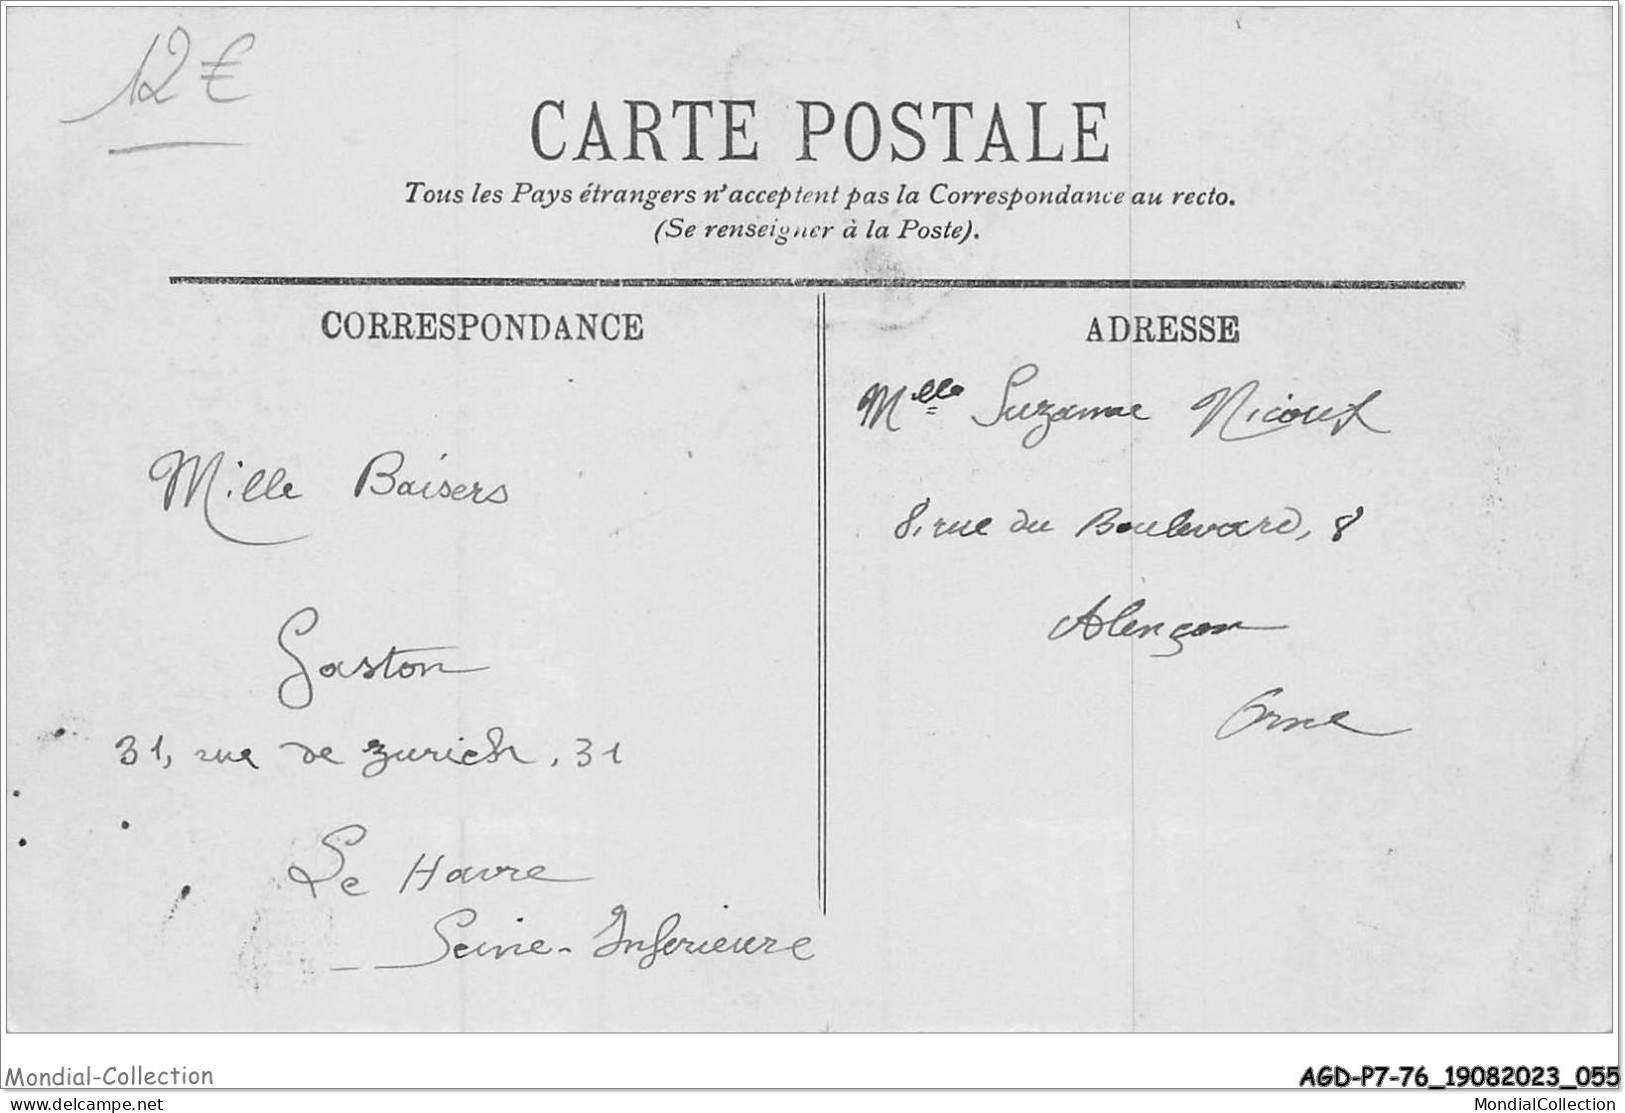 12 €
CARTE POSTALE
Tous les Pays étrangers n'acceptent pas la Correspondance au recto.
(Se renseigner à la Poste).
CORRESPONDANCE
Mille Baisers
Gaston
31, rue de Zurich, 31
Le Havre
Seine-Inférieure
ADRESSE
Mlle Suzanne
8, rue du Boulevard, 8
Alençon
Orne
Mondial-Collection
AGD-P7-76_19082023_055
www.delcampe.net
MondialCollection